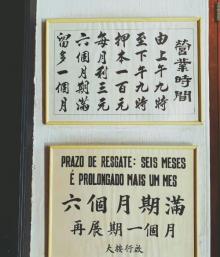 營業時間
由上午九時
至下午九時
押本一百元
每月利三元
六個月期滿
留多一個月
PRAZO DE RESGATE: SEIS MESES
É PROLONGADO MAIS UM MES
六個月期滿
再展期一個月
大按行啟